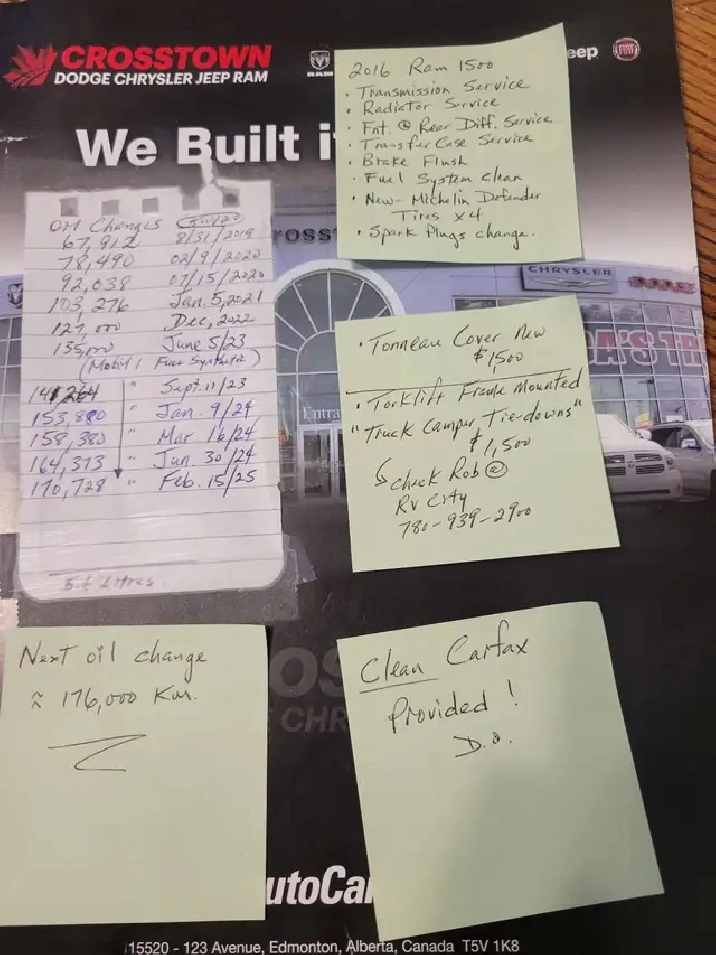 CROSSTOWN
DODGE CHRYSLER JEEP RAM
RAM
eep
FIAT
We Built i
2016 Ram 1500
• Transmission Service
• Radiator Service
• Fnt. @ Rear Diff. Service
• Transfer Case Service
• Brake Flush
• Fuel System Clean
• New- Michelin Defender
Tires x4
• Spark Plugs change.
Oil Changes
67,912 8/31/2019
78,490 02/9/2020
92,038 07/15/2020
103,276 Jan. 5, 2021
127,000 Dec, 2022
135,000 June 5/23
(Mobil 1 Full Synthetic)
141,264 " Sept. 11/23
153,880 " Jan. 9/24
158,380 " Mar 16/24
164,313 " Jun. 30/24
170,728 " Feb. 15/25
Litres.
ROSS
CHRYSLER
DODGE
DA'S TR
Entra
• Tonneau Cover New
$1500
• Torklift Frame Mounted
"Truck Camper Tie-downs"
$1,500
↳ check Rob @
RV City
780-939-2900
Next oil change
≈ 176,000 Km.
OS
E CHR
Clean Carfax
Provided!
D.O.
utoCa
15520 - 123 Avenue, Edmonton, Alberta, Canada T5V 1K8